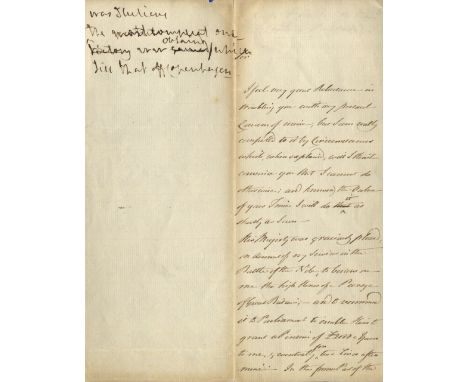 was I believe
the most compleat one
Victory was
obtaind
till that of Copenhagen
Sir
I feel very great Reluctance in
troubling you with any present
Concern of mine, but I am really
compelled to it by Circumstances
which, when explained, will I think
convince you that I cannot do
otherwise; and knowing the Value
of your Time I will do that as
it
shortly as I can —
His Majesty was graciously pleased,
in consequence of my Services in the
Battle of the Nile, to bestow on
me the high Honor of a Peerage
of Great Britain; and to recommend
it to Parliament to enable Him to
grant a Pension of £2000 a Year
to me, & eventually for two Lives after
mine: — In the former Part of the